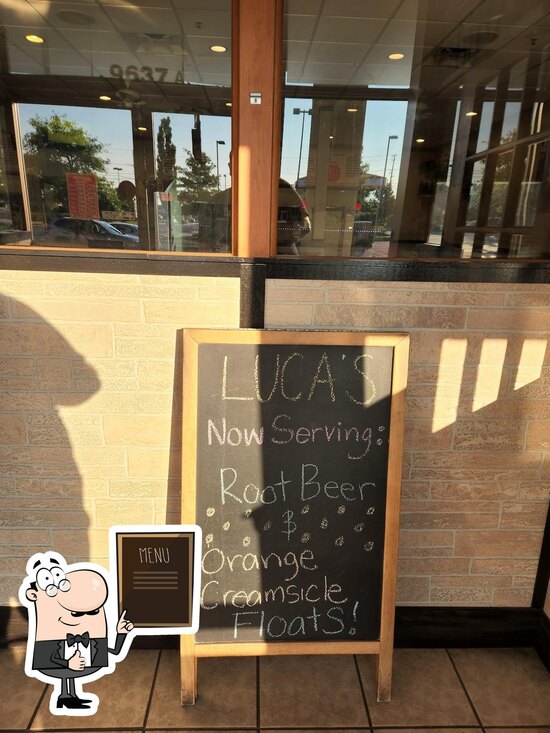 9637 A
LUCA'S
Now Serving:
Root Beer
&
Orange
Creamsicle
Floats!
MENU